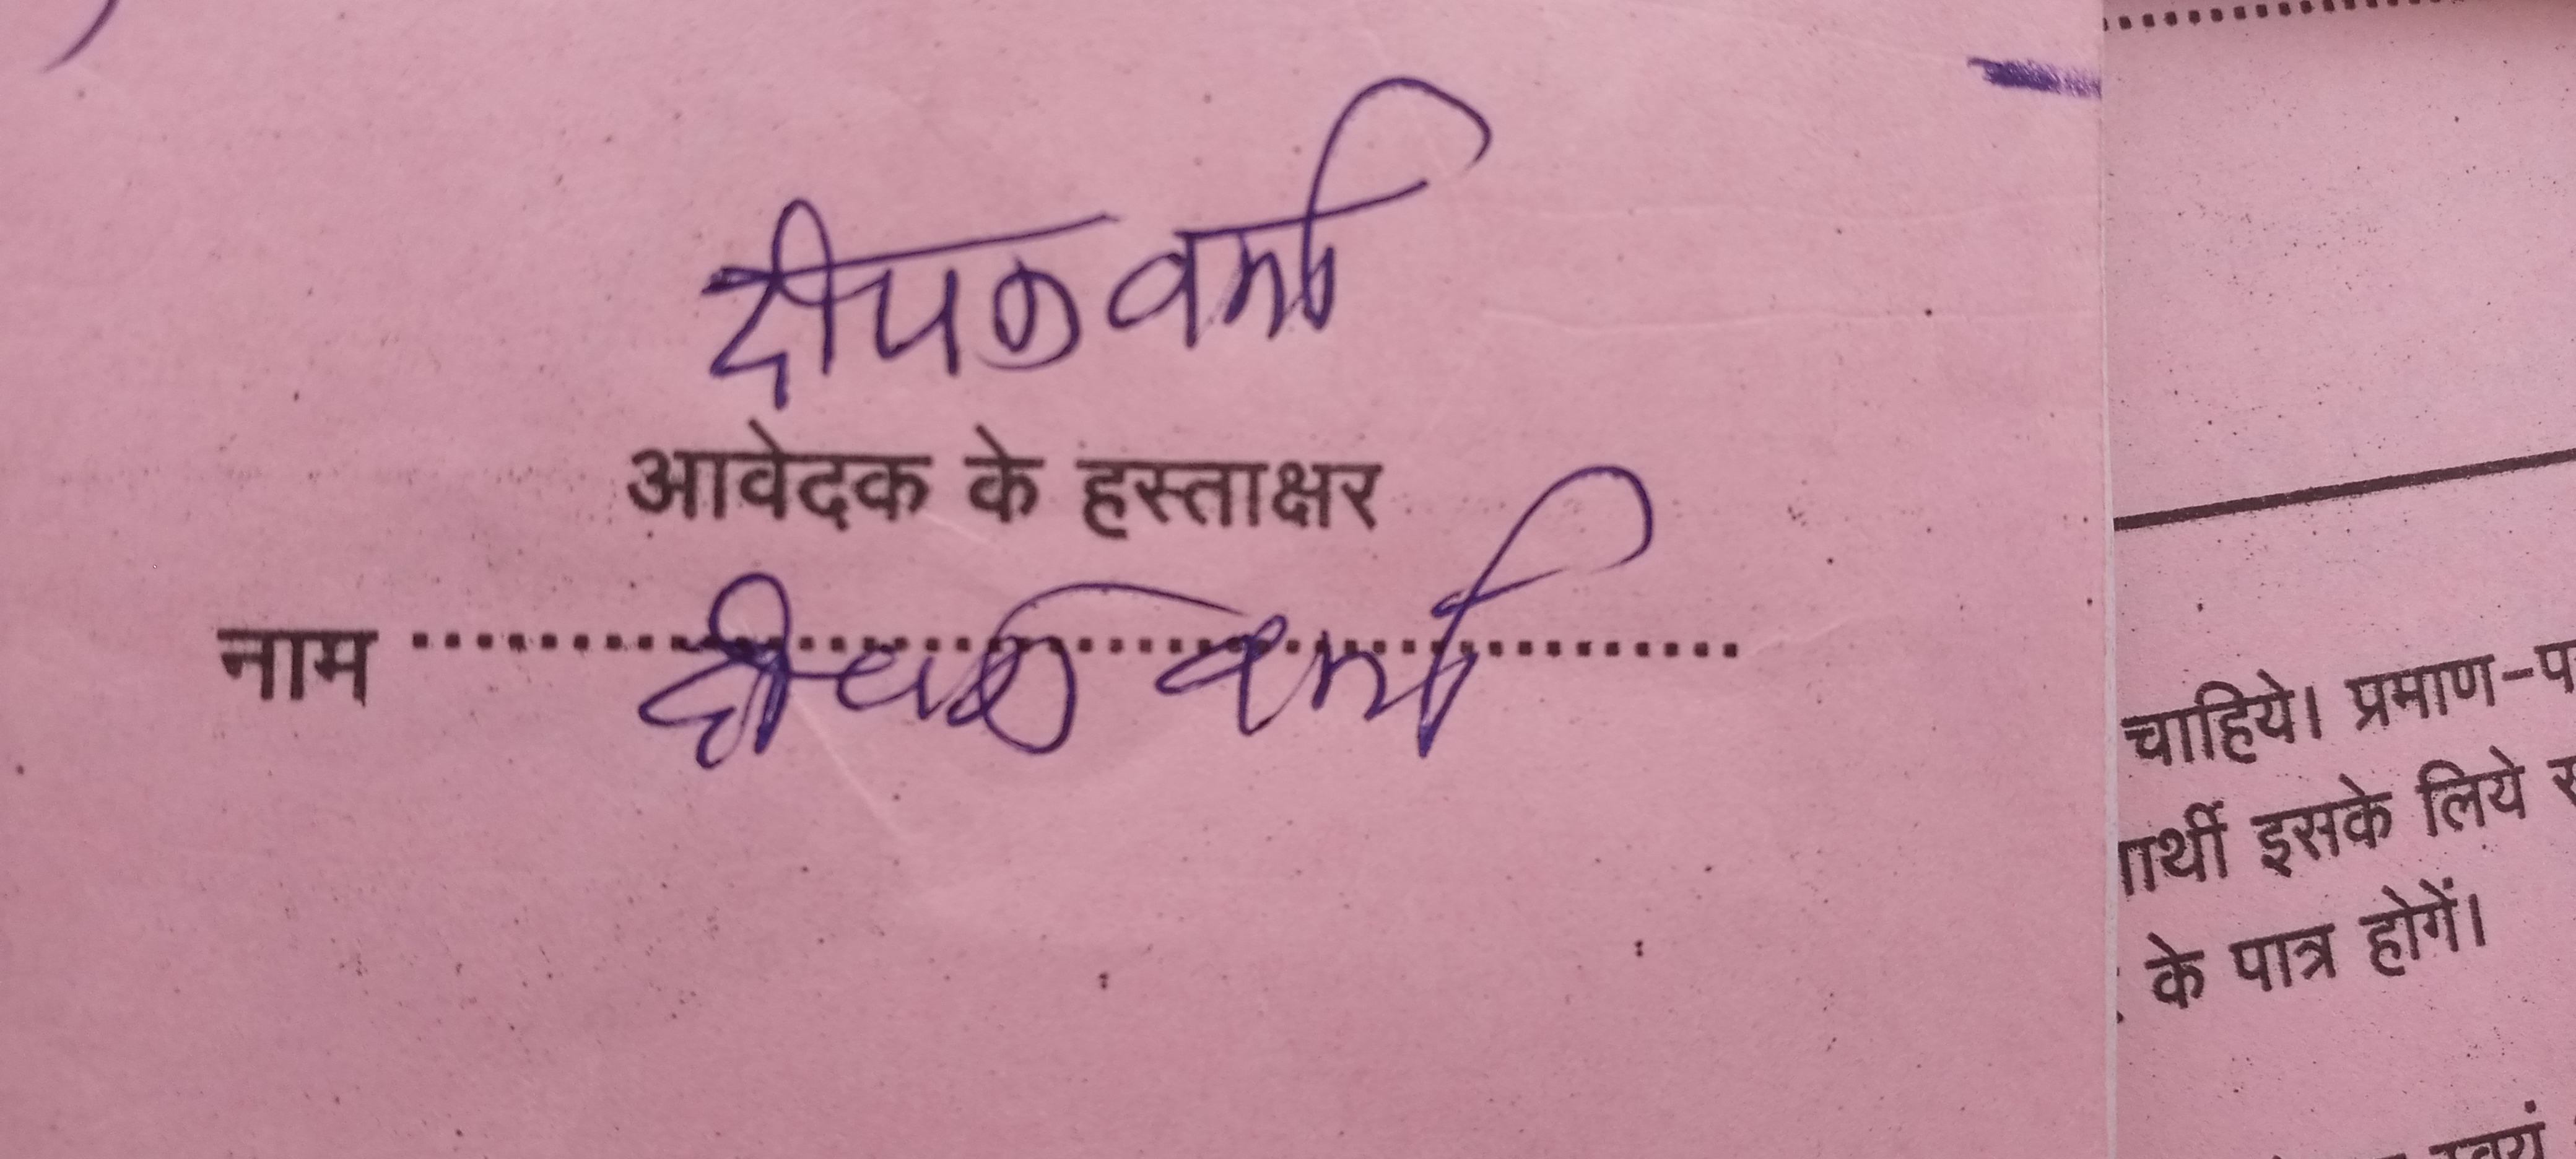 दीपक वर्मा
आवेदक के हस्ताक्षर
नाम ........ दीपक वर्मा ........
चाहिये। प्रमाण-प
ार्थी इसके लिये
के पात्र होगें।